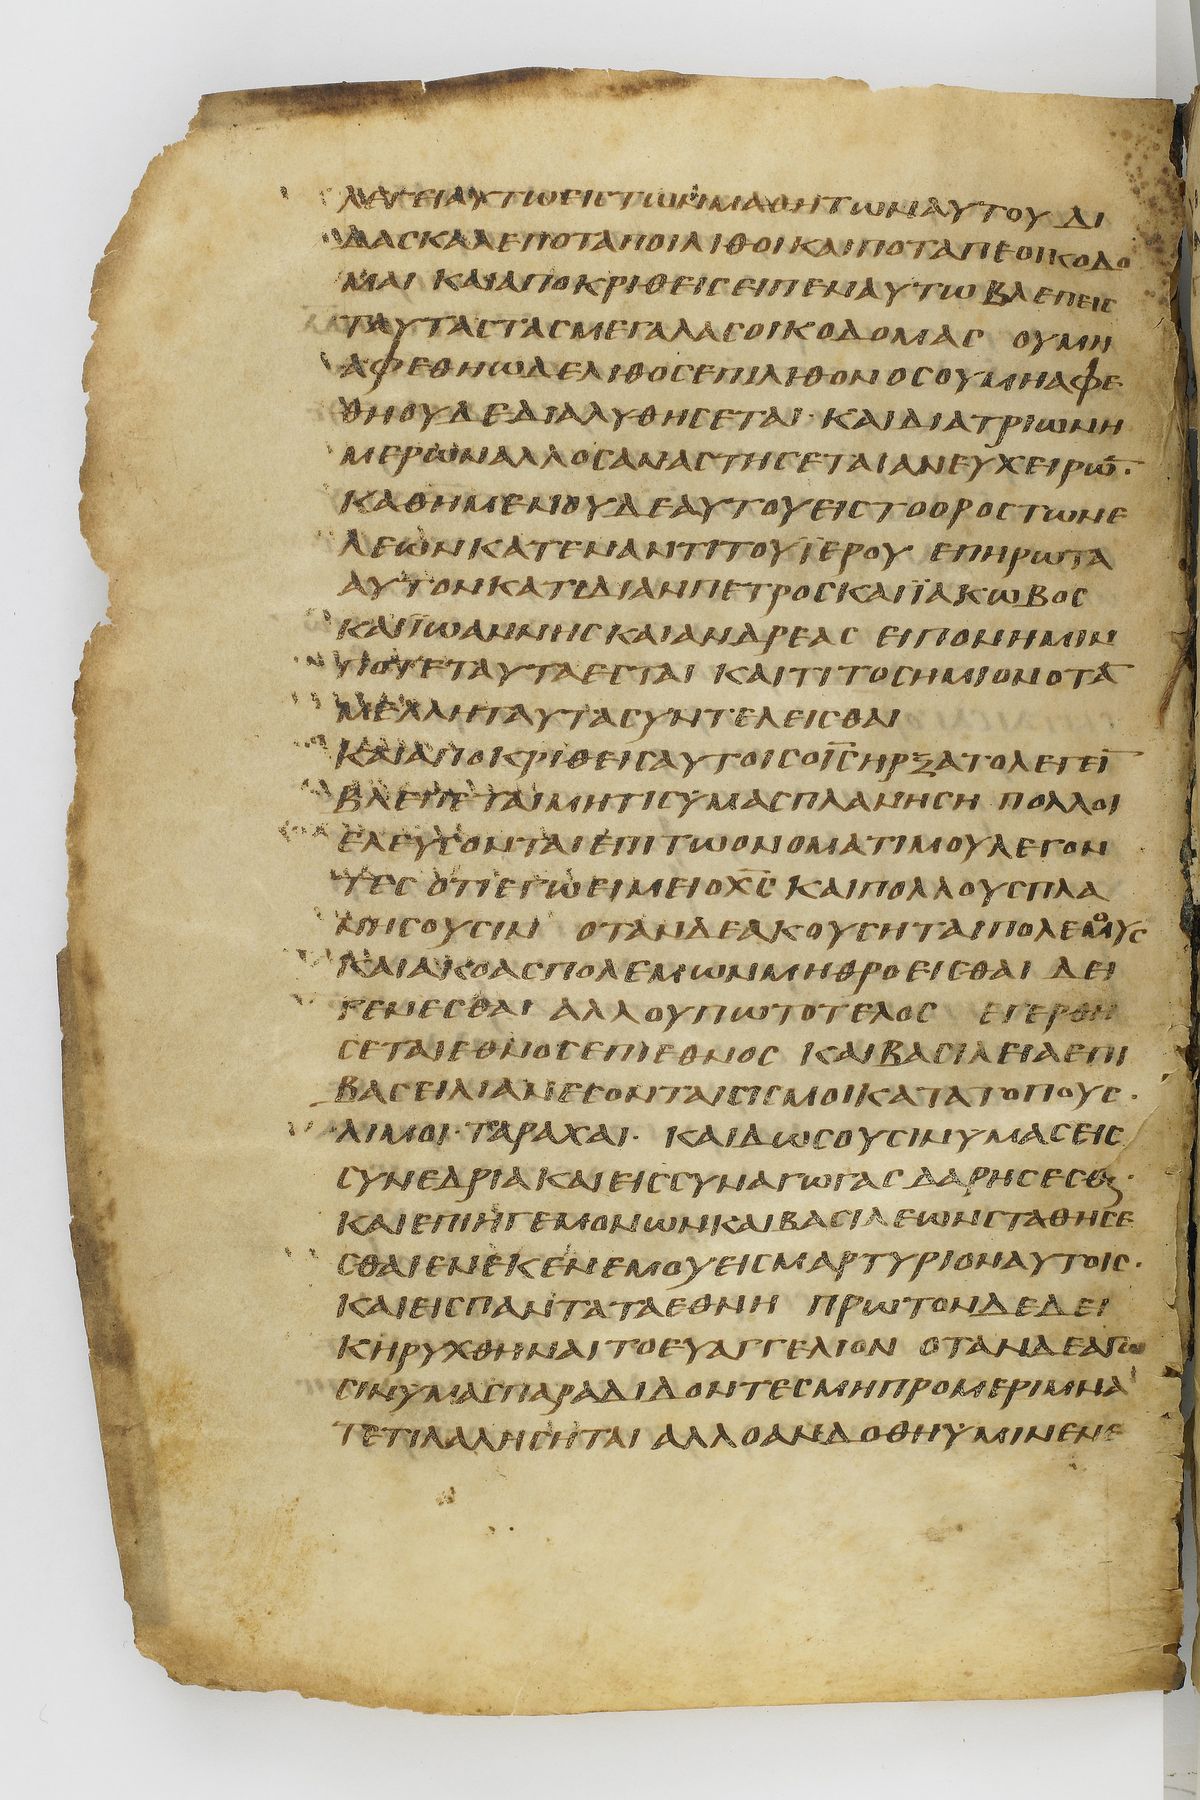 ΛΕΓΕΙΑΥΤΩΕΙΣΤΩΝΜΑΘΗΤΩΝΑΥΤΟΥ ΔΙ
ΔΑΣΚΑΛΕΠΟΤΑΠΟΙΛΙΘΟΙΚΑΙΠΟΤΑΠΕΟΙΚΟΔΟ
ΜΑΙ ΚΑΙΑΠΟΚΡΙΘΕΙΣΕΙΠΕΝΑΥΤΩ ΒΛΕΠΕΙΣ
ΤΑΥΤΑΣΤΑΣΜΕΓΑΛΑΣΟΙΚΟΔΟΜΑΣ ΟΥΜΗ
ΑΦΕΘΗΩΔΕΛΙΘΟΣΕΠΙΛΙΘΟΝΟΣΟΥΜΗΑΦΕ
ΘΗΟΥΔΕΔΙΑΛΥΘΗΣΕΤΑΙ· ΚΑΙΔΙΑΤΡΙΩΝΗ
ΜΕΡΩΝΑΛΛΟΣΑΝΑΣΤΗΣΕΤΑΙΑΝΕΥΧΕΙΡΩ̅·
ΚΑΘΗΜΕΝΟΥΔΕΑΥΤΟΥΕΙΣΤΟΟΡΟΣΤΩΝΕ
ΛΕΩΝΚΑΤΕΝΑΝΤΙΤΟΥΪΕΡΟΥ ΕΠΗΡΩΤΑ
ΑΥΤΟΝΚΑΤΙΔΙΑΝΠΕΤΡΟΣΚΑΙΪΑΚΩΒΟΣ
ΚΑΙΪΩΑΝΝΗΣΚΑΙΑΝΔΡΕΑΣ ΕΙΠΟΝΗΜΙΝ
ΠΟΤΕΤΑΥΤΑΕΣΤΑΙ ΚΑΙΤΙΤΟΣΗΜΙΟΝΟΤΑ̅
ΜΕΛΛΗΤΑΥΤΑΣΥΝΤΕΛΕΙΣΘΑΙ
ΚΑΙΑΠΟΚΡΙΘΕΙΣΑΥΤΟΙΣΟΙ̅Σ̅ΗΡΞΑΤΟΛΕΓΕΙ̅
ΒΛΕΠΕΤΑΙΜΗΤΙΣΥΜΑΣΠΛΑΝΗΣΗ ΠΟΛΛΟΙ
ΕΛΕΥΣΟΝΤΑΙΕΠΙΤΩΟΝΟΜΑΤΙΜΟΥΛΕΓΟΝ
ΤΕΣ ΟΤΙΕΓΩΕΙΜΕΙΟΧ̅Σ̅ ΚΑΙΠΟΛΛΟΥΣΠΛΑ
ΝΗΣΟΥΣΙΝ ΟΤΑΝΔΕΑΚΟΥΣΗΤΑΙΠΟΛΕΜΟΥΣ
ΚΑΙΑΚΟΑΣΠΟΛΕΜΩΝΜΗΘΡΟΕΙΣΘΑΙ ΔΕΙ
ΓΕΝΕΣΘΑΙ ΑΛΛΟΥΠΩΤΟΤΕΛΟΣ ΕΓΕΡΘΗ
ΣΕΤΑΙΕΘΝΟΣΕΠΙΕΘΝΟΣ ΚΑΙΒΑΣΙΛΕΙΑΕΠΙ
ΒΑΣΕΙΛΙΑΝΕΣΟΝΤΑΙΣΙΣΜΟΙΚΑΤΑΤΟΠΟΥΣ·
ΛΙΜΟΙ· ΤΑΡΑΧΑΙ· ΚΑΙΔΩΣΟΥΣΙΝΥΜΑΣΕΙΣ
ΣΥΝΕΔΡΙΑΚΑΙΕΙΣΣΥΝΑΓΩΓΑΣ ΔΑΡΗΣΕΣΘΑΙ·
ΚΑΙΕΠΙΗΓΕΜΟΝΩΝΚΑΙΒΑΣΙΛΕΩΝΣΤΑΘΗΣΕ
ΣΘΑΙΕΝΕΚΕΝΕΜΟΥΕΙΣΜΑΡΤΥΡΙΟΝΑΥΤΟΙΣ·
ΚΑΙΕΙΣΠΑΝΤΑΤΑΕΘΝΗ ΠΡΩΤΟΝΔΕΔΕΙ
ΚΗΡΥΧΘΗΝΑΙΤΟΕΥΑΓΓΕΛΙΟΝ ΟΤΑΝΔΕΑΓΩ
ΣΙΝΥΜΑΣΠΑΡΑΔΙΔΟΝΤΕΣΜΗΠΡΟΜΕΡΙΜΝΑ
ΤΕΤΙΛΑΛΗΣΗΤΑΙ ΑΛΛΟΑΝΔΟΘΗΥΜΙΝΕΝΕ